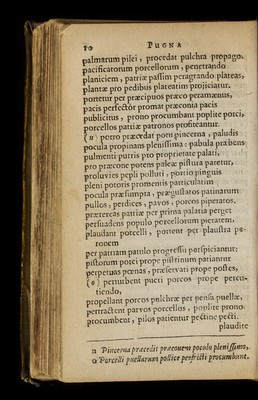 10 PUGNA
palmarum pilei, procedat pulchra propago.
pacificatorum porcellorum, penetrando
planiciem, patriæ passim peragrando plateas,
plantæ pro pedibus plateatim projiciatur.
portetur per præcipuos præco peramænus,
pacis perfectòr promat præconia pacis
publicitus, prono procumbant poplite porci,
porcellos patriæ patronos profiteantur.
(n) porro præcedat pincerna, paludis
pocula propinans plenissima: pabula præbens
pulmenti putris pro proprietate palati,
pro præcone potens paleæ pistura paretur,
proluvies pepli polluti, portio pinguis
pleni potoris promentis particulatim
pocula præsumpta, prægustatos patinarum
pullos, perdices, pavos, porcos piperatos.
prætereas patriæ per prima palatia perget
persuadens populo porcellorum pietatem.
plaudant porcelli, portent per plaustra pe-
ronem
per patriam patulo progressu perspiciantur:
pistorum porci prope pistrinum patiantur
perpetuas pœnas, præservari prope postes,
(o) perturbent pueri porcos prope percu-
tiendo,
propellant porcos pulchræ per pensa puellæ,
pertractent parvos porcellos, poplite prono
procumbent, pilos patientur pectine pecti.
plaudite
n Pincerna præcedit præconem poculo plenissimo,
o Porcelli puellarum pollice perfricti procumbunt.